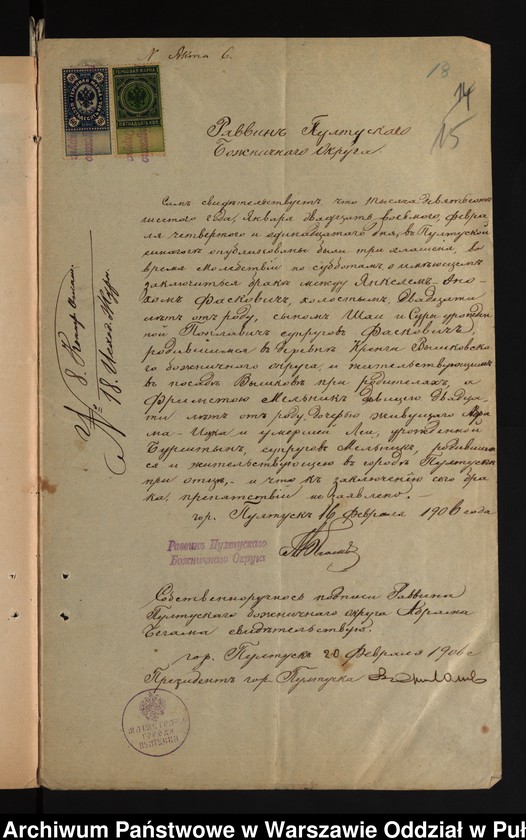 N Акта 6.
18
14
15
Раввинъ Пултускаго
Божничнаго Округа.
Симъ свидѣтельствуетъ что тысяча девятьсотъ
шестого года, Января двадцать восьмого, Февра
ля четвертого и одинадцатаго дня, въ Пултуской
синагогѣ опубликованы были три оглашенія, во
время молебствій по субботамъ, о имѣющемъ
заключиться бракѣ между Янкелемъ-Ено-
хомъ Фасковичъ, холостымъ, двадцати
лѣтъ отъ роду, сыномъ Шаи и Суры урожден
ной супруговъ Фасковичъ,
родившимся въ деревнѣ Вышковска
го божничнаго округа и жительствующимъ
въ посадѣ Вышковъ при родителяхъ, а
Фриметою Мельникъ дѣвицею двадца
ти лѣтъ отъ роду, дочерью живущаго Абра
ма-Ицка и умершей Леи, урожденной
Бурштынъ, супруговъ Мельникъ, родившею
ся и жительствующею въ городѣ Пултускѣ
при отцѣ,- и что къ заключенію сего бра
ка, препятствій не заявлено.-
гор. Пултускъ 16 Февраля 1906 года
Раввинъ Пултускаго
Божничнаго Округа
Собственноручность подписи Раввина
Пултускаго божничнаго округа Абрама
свидѣтельствую.
гор. Пултускъ 20 Февраля 1906 г.
Президентъ гор. Пултуска
МАГИСТРАТЪ
ГОРОДА
ПУЛТУСКА
ГЕРБОВАЯ МАРКА
ГЕРБОВАЯ МАРКА
ПЯТНАДЦАТЬ КОП.
№ 8.
№ 18.
Archiwum Państwowe w Warszawie Oddział w Puł